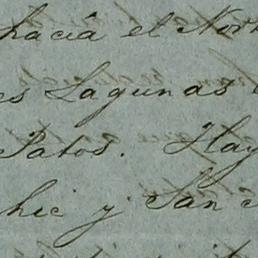 hacia el Nor
es Lagunas
Patos. Hay
hic y San